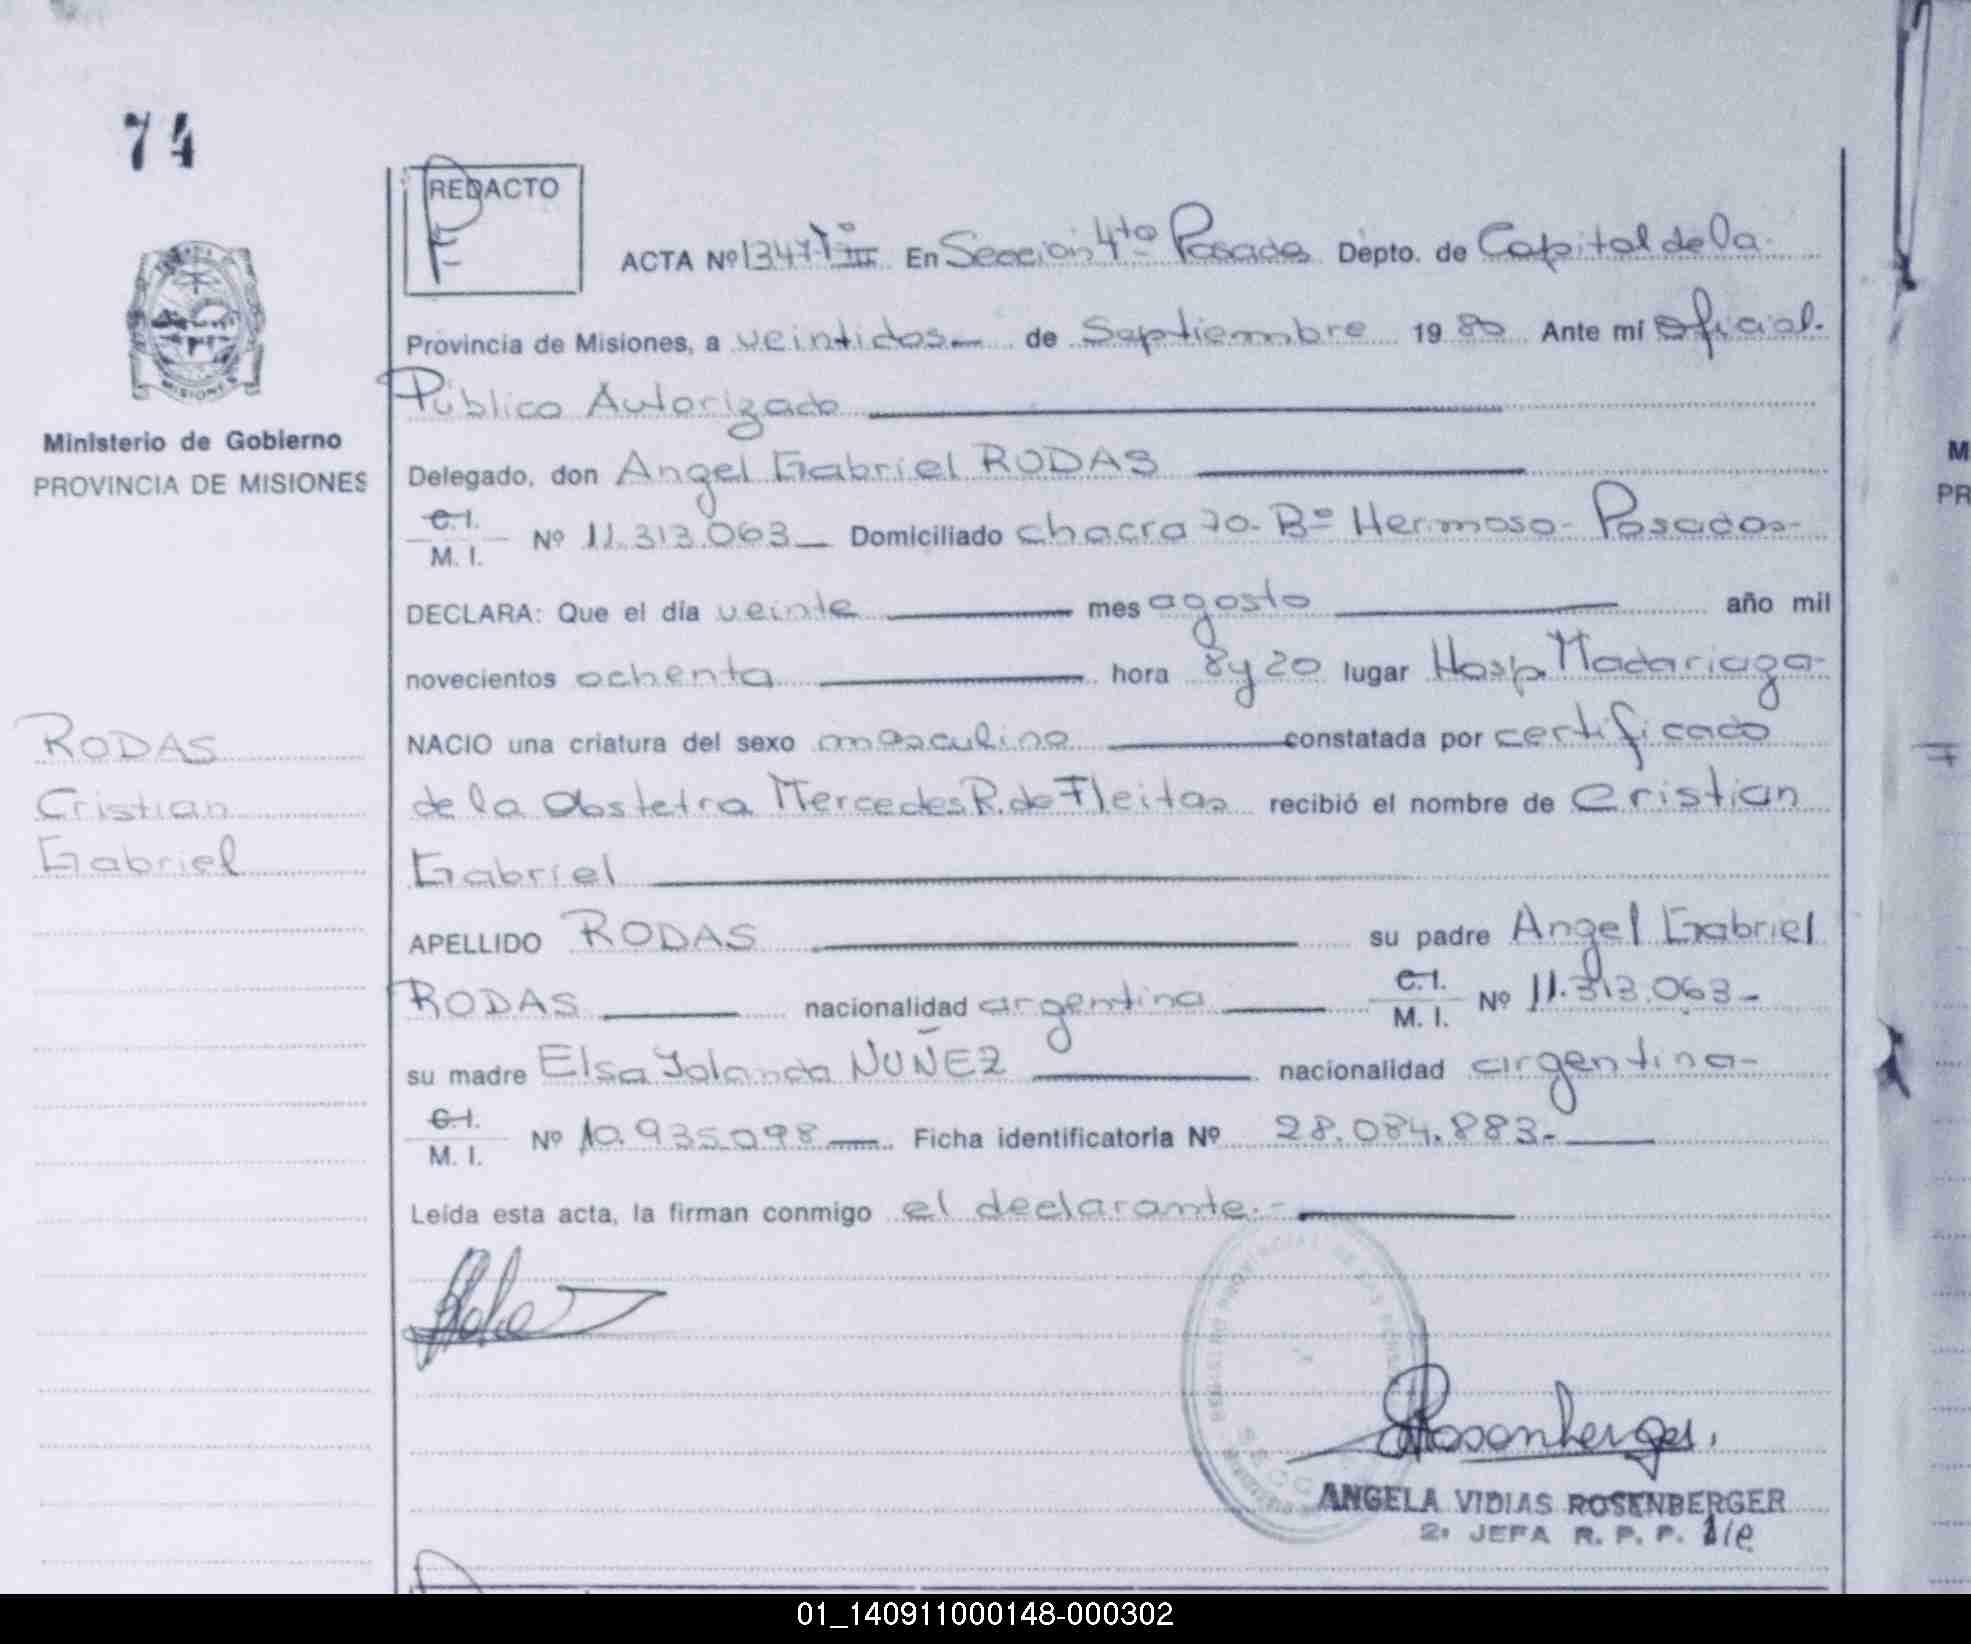 74
REDACTO
P
F
ACTA Nº 1347 Tº III En Sección 4ta Posadas Depto. de Capital de la
Provincia de Misiones, a veintidos de Septiembre 1980 Ante mi Oficial
Público Autorizado
Ministerio de Gobierno
PROVINCIA DE MISIONES
Delegado, don Angel Gabriel RODAS
C.I.
M. I. Nº 11.313.063 Domiciliado chacra 70-Bº Hermoso-Posadas-
DECLARA: Que el día veinte mes agosto año mil
novecientos ochenta hora 8 y 20 lugar Hosp Madariaga-
NACIO una criatura del sexo masculino constatada por certificado
de la Obstetra Mercedes R. de Fleitas recibió el nombre de Cristian
Gabriel
RODAS
Cristian
Gabriel
APELLIDO RODAS su padre Angel Gabriel
RODAS nacionalidad argentina C.I. M. I. Nº 11.313.063-
su madre Elsa Yolanda NUÑEZ nacionalidad argentina-
C.I.
M. I. Nº 10.935.098 Ficha identificatoria Nº 28.084.883.-
Leída esta acta, la firman conmigo el declarante.-
REGISTRO PROVINCIAL DE LAS PERSONAS
Rosenberger
ANGELA VIDIAS ROSENBERGER
2ª JEFA R. P. P.
M
PR
01_140911000148-000302